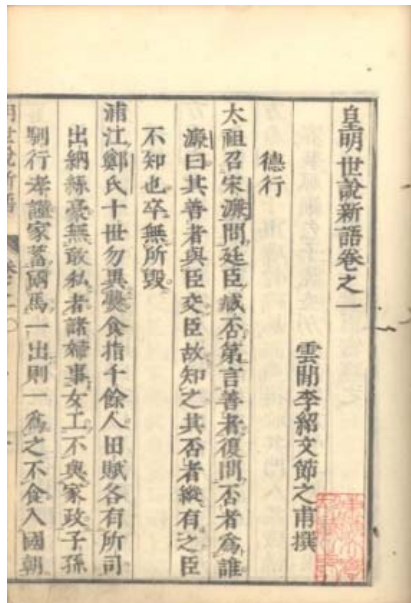 皇明世說新語卷之一
雲間李紹文節之甫撰
德行
太祖召宋濂問廷臣臧否第言善者復問否者為誰
濂曰其善者與臣交臣故知之其否者縱有之臣
不知也卒無所毀
浦江鄭氏十世勿異爨食指千餘人田賦各有所司
出納絲毫無敢私者諸婦事女工不與家政子孫
馴行孝謹家蓄兩馬一出則一為之不食入國朝